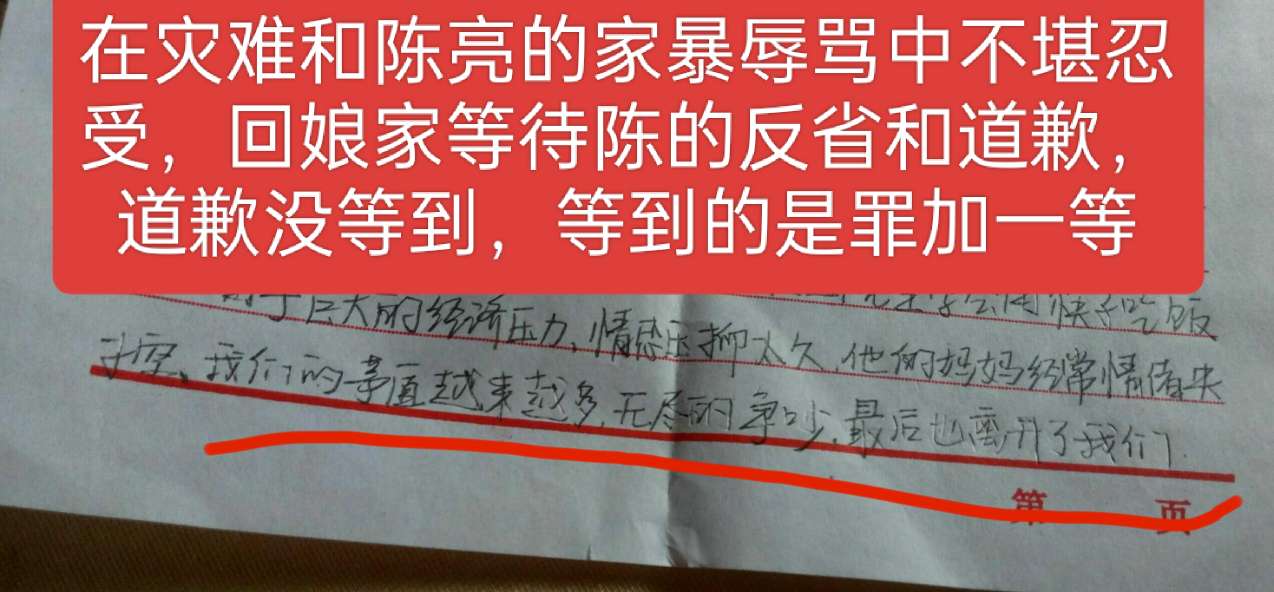 在灾难和陈亮的家暴辱骂中不堪忍
受，回娘家等待陈的反省和道歉，
道歉没等到，等到的是罪加一等
学会用筷子吃饭
由于巨大的经济压力、情感压抑太久,他的妈妈经常情绪失
控、我们的茅盾越来越多,无尽的争吵,最后也离开了我们.
第 页